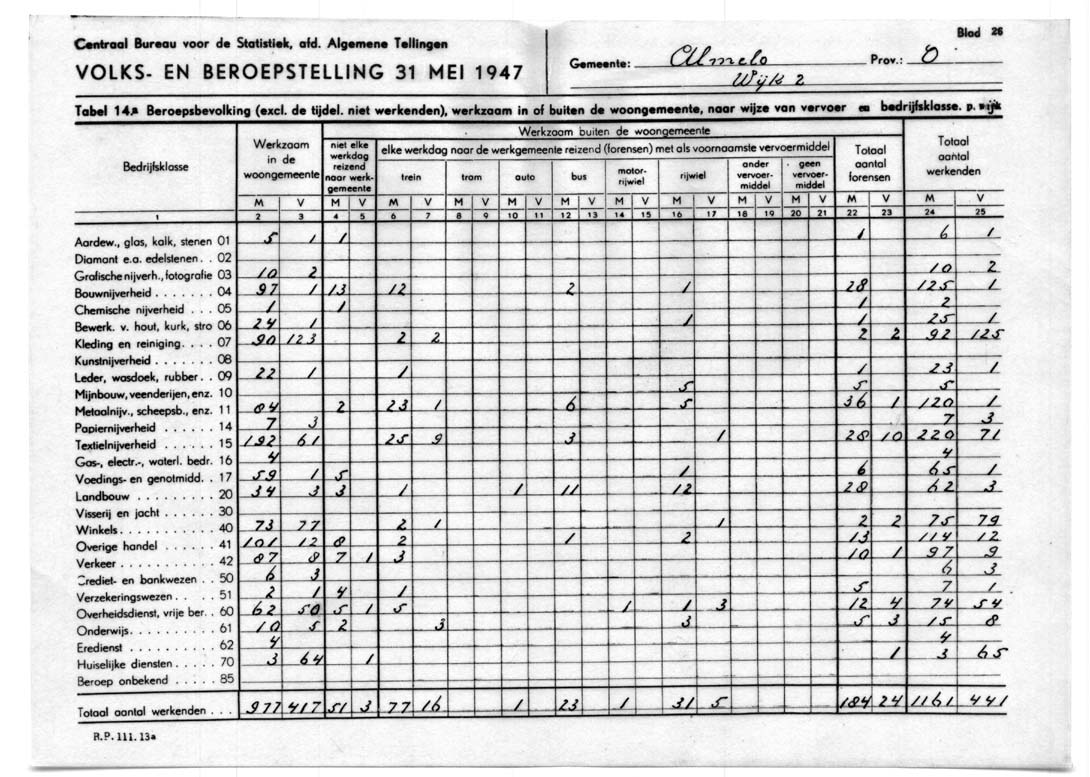 Blad 26
Centraal Bureau voor de Statistiek, afd. Algemene Tellingen
VOLKS- EN BEROEPSTELLING 31 MEI 1947
Gemeente: Almelo Prov.: O
Wijk 2
Tabel 14.a Beroepsbevolking (excl. de tijdel. niet werkenden), werkzaam in of buiten de woongemeente, naar wijze van vervoer en bedrijfsklasse. p. wijk
Bedrijfsklasse
Werkzaam in de woongemeente
Werkzaam buiten de woongemeente
niet elke werkdag reizend naar werkgemeente
elke werkdag naar de werkgemeente reizend (forensen) met als voornaamste vervoermiddel
trein tram auto bus motorrijwiel rijwiel ander vervoermiddel geen vervoermiddel
Totaal aantal forensen
Totaal aantal werkenden
M V M V M V M V M V M V M V M V M V M V M V M V
1 2 3 4 5 6 7 8 9 10 11 12 13 14 15 16 17 18 19 20 21 22 23 24 25
Aardew., glas, kalk, stenen 01 5 1 1 1 6 1
Diamant e.a. edelstenen . . 02
Grafische nijverh., fotografie 03 10 2 10 2
Bouwnijverheid . . . . . . . 04 97 1 13 12 2 1 28 125 1
Chemische nijverheid . . . 05 1 1 1 2
Bewerk. v. hout, kurk, stro 06 24 1 1 1 25 1
Kleding en reiniging. . . . 07 90 123 2 2 2 2 92 125
Kunstnijverheid . . . . . . 08
Leder, wasdoek, rubber. . 09 22 1 1 1 23 1
Mijnbouw, veenderijen, enz. 10 5 5 5
Metaalnijv., scheepsb., enz. 11 84 2 23 1 6 5 36 1 120 1
Papiernijverheid . . . . . 14 7 3 7 3
Textielnijverheid . . . . . 15 192 61 25 9 3 1 28 10 220 71
Gas-, electr.-, waterl. bedr. 16 4 4
Voedings- en genotmidd. . 17 59 1 5 1 6 65 1
Landbouw . . . . . . . . 20 34 3 3 1 1 11 12 28 62 3
Visserij en jacht . . . . . 30
Winkels. . . . . . . . . . 40 73 77 2 1 1 2 2 75 79
Overige handel . . . . . 41 101 12 8 2 1 2 13 114 12
Verkeer . . . . . . . . . 42 87 8 7 1 3 10 1 97 9
Crediet- en bankwezen . . 50 6 3 6 3
Verzekeringswezen. . . . . 51 2 1 4 1 5 7 1
Overheidsdienst, vrije ber. . 60 62 50 5 1 5 1 1 3 12 4 74 54
Onderwijs. . . . . . . . . 61 10 5 2 3 3 5 3 15 8
Eredienst . . . . . . . . 62 4 4
Huiselijke diensten . . . . 70 3 64 1 1 3 65
Beroep onbekend . . . . . 85
Totaal aantal werkenden . . . 977 417 51 3 77 16 1 23 1 31 5 184 24 1161 441
R.P. 111. 13a